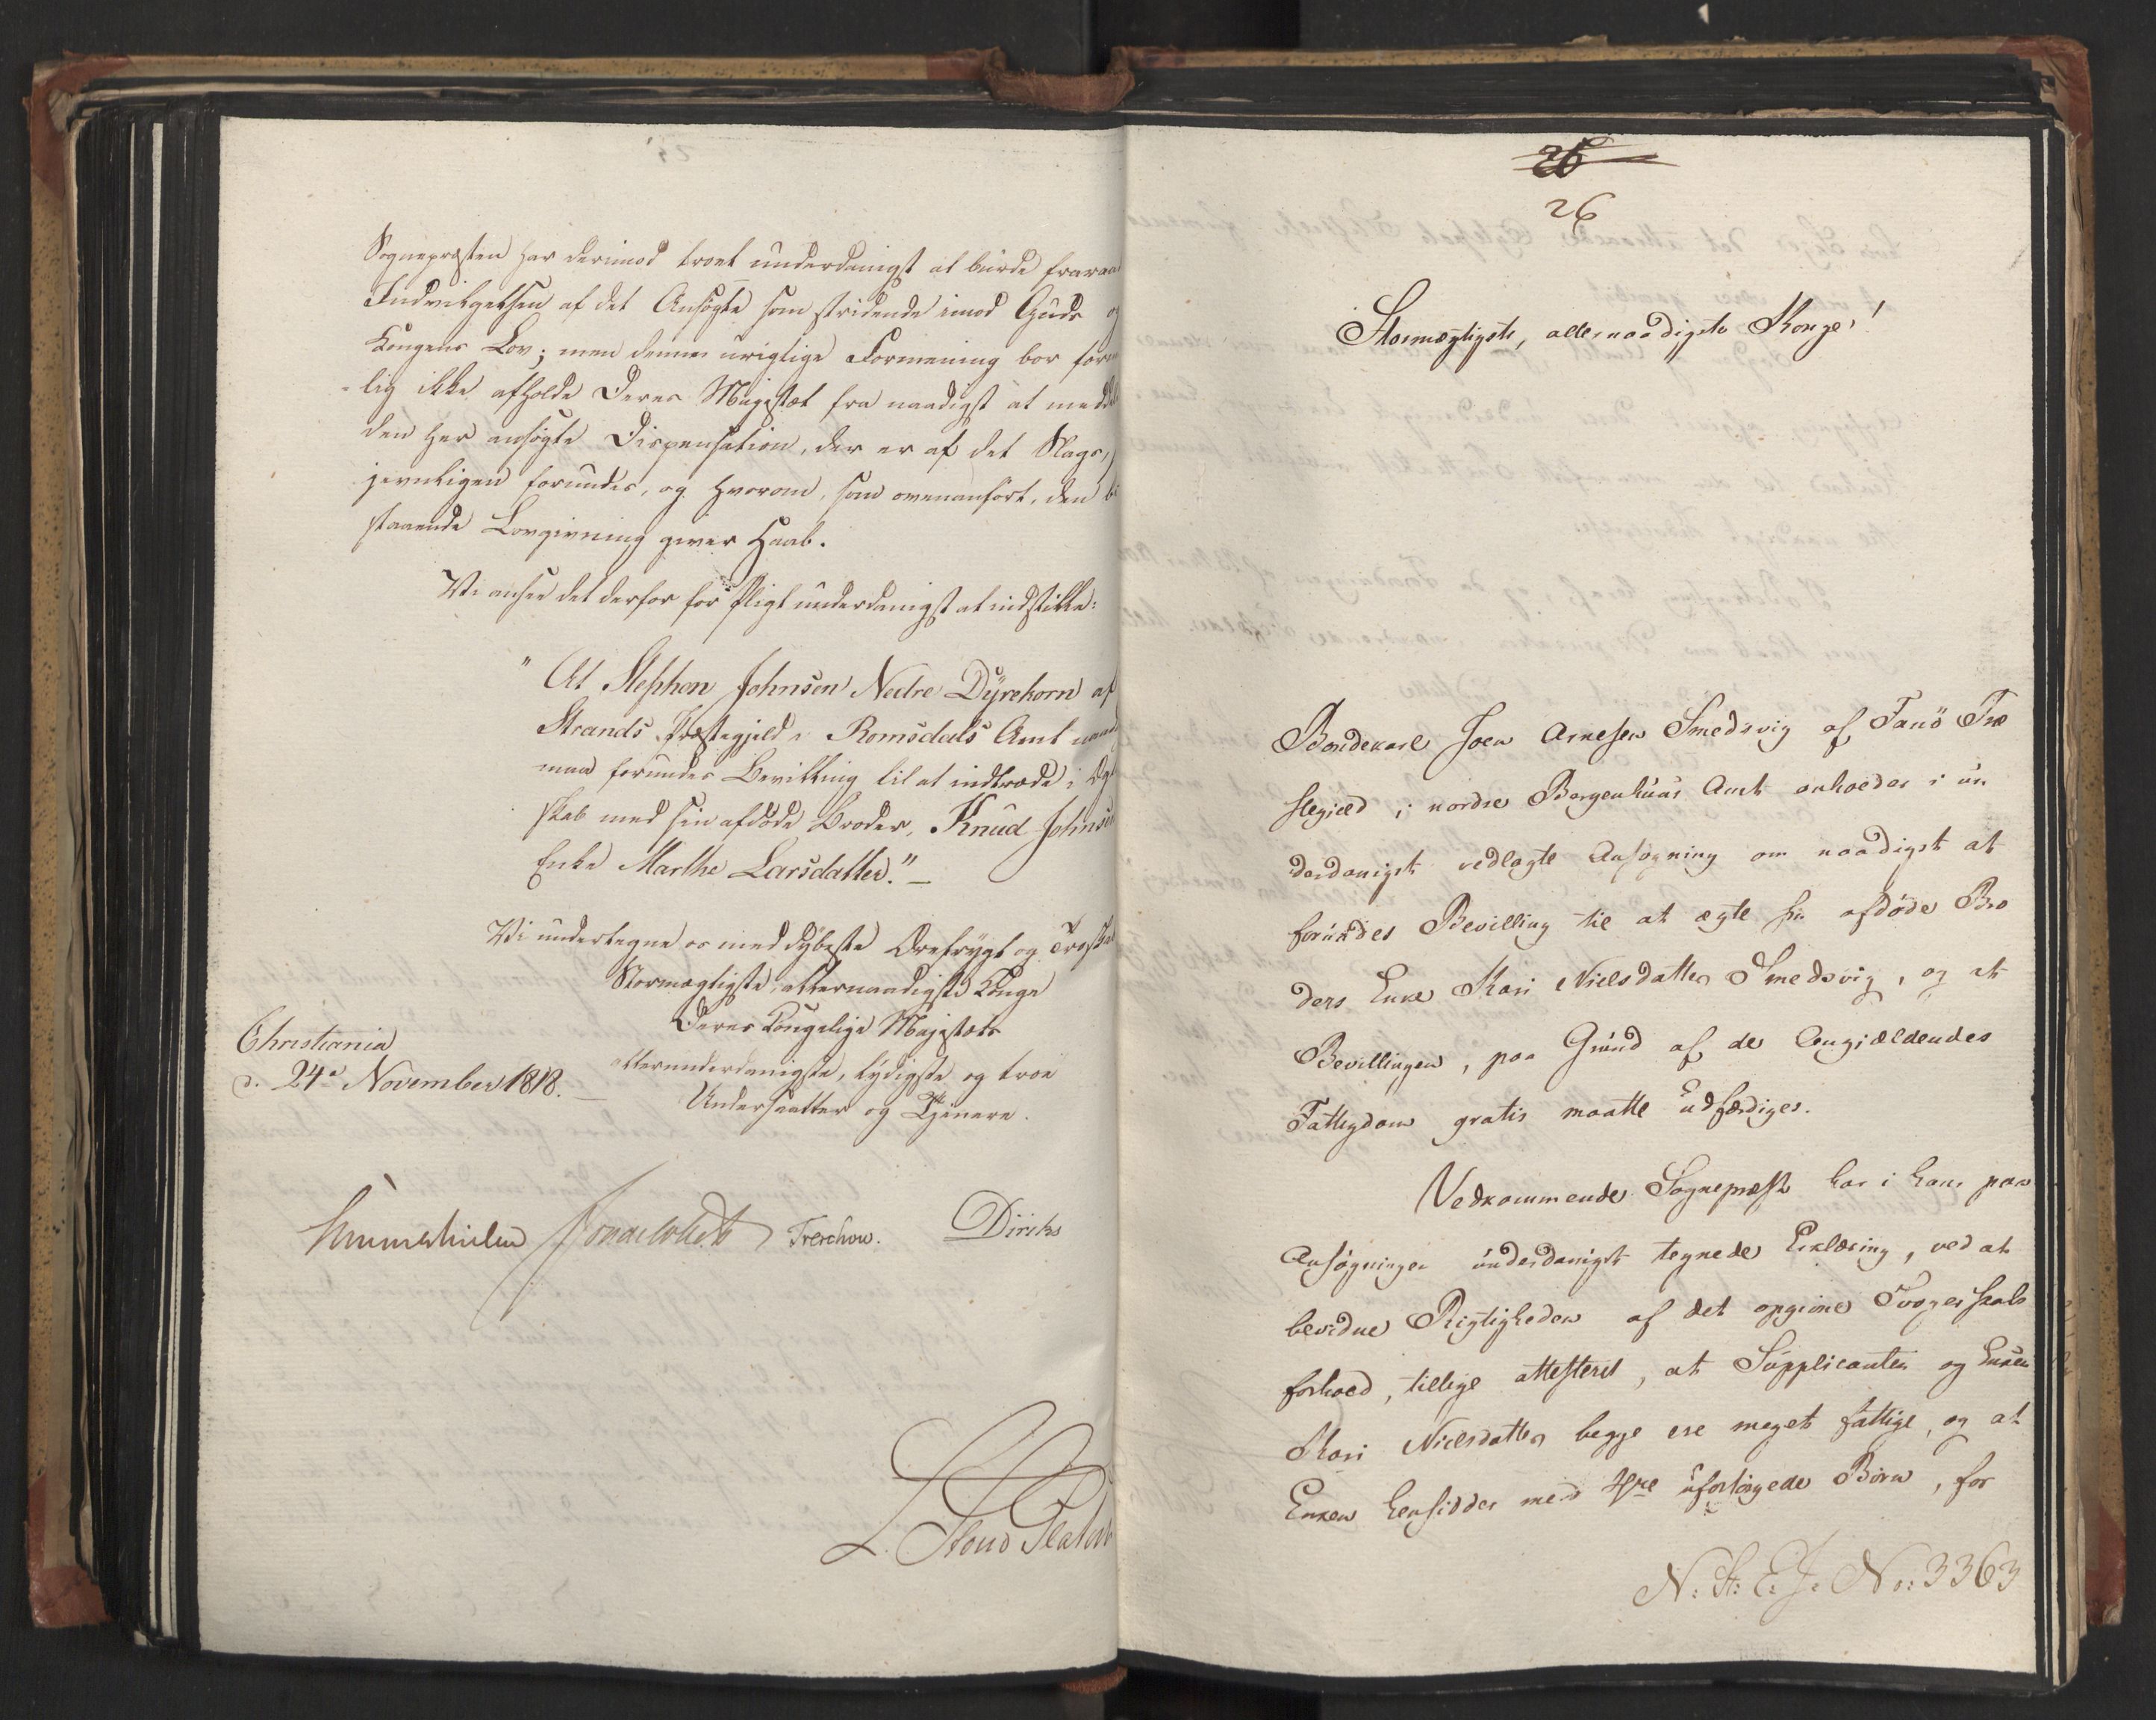 Sognepræsten har derimod troet underdanigst at burde fraraa
Indvilgelsen af det Ansøgte som stridende imod Guds og
Kongens Lov; men denne urigtige Formening bør for
-lig ikke afholde Deres Majestæt fra naadigst at medd
den her ansøgte Dispensation, der er af det Slags,
jevnligen forundes, og hvorom, som ovenanført, den be
staaende Lovgivning giver Haab.
Vi ansee det derfor for Pligt underdanigst at indstille:
"At Stephen Johnsen Nedre Dyrekorn af
Strands Præstegjeld i Romsdals Amt naad
maa forundes Bevilling til at indtræde i Ægt
skab med sin afdøde Broder, Knud Johnsen
Enke Marthe Larsdatter."_
Vi undertegne os med dybeste Ærefrygt og Troskab
Stormægtigste, allernaadigste Konge
Deres Kongelige Majestæts
allerunderdanigste, lydigste og troe
Undersaatter og Tjenere.
Christiania
d. 24de November 1818._
Sommerhielm Treschow. Diriks
L. Stoud Platou
26
26
Stormægtigste, allernaadigste Konge!
Bondekarl Joen Arnesen Smedsvig af Fanö Præ
stegield i nordre Bergenhuus Amt anholder i un
derdanigst vedlagte Ansøgning om naadigst at
forundes Bevilling til at ægte sin afdöde Bro
ders Enke Kari Nielsdatter Smedsvig, og at
Bevillingen, paa Grund af de Angiældendes
Fattigdom gratis maatte udfærdiges.
Vedkommende Sognepræst har i hans paa
Ansøgningen underdanigst tegnede Erklæring, ved at
bevidne Rigtigheden af det opgivne Svogerskabs
forhold, tillige attesteret, at Supplicanten og Enken
Kari Nielsdatter begge ere meget fattige, og at
Enken hensidder med 4re uforsørgede Børn, for
N: St: E. J. No: 3363